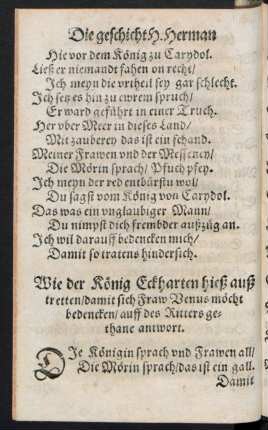 Die geschicht H. Herman
Hie vor dem König zu Carydol.
Ließ er niemandt fahen on recht/
Jch meyn die vrtheil sey gar schlecht.
Jch setz es hin zu ewrem spruch/
Er ward geführt in einer Truch.
Her vber Meer in dieses Land/
Mit zauberey das ist ein schand.
Meiner Frawen vnd der Messeney/
Die Mörin sprach/ Pfuch pfey.
Jch meyn der red entbürstu wol/
Du sagst vom König von Carydol.
Das was ein vnglaubiger Mann/
Du nimpst dich frembder außzüg an.
Jch wil darauff bedencken mich/
Damit so tratens hindersich.
Wie der König Eckharten hieß auß
tretten/ damit sich Fraw Venus möcht
bedencken/ auff des Ritters ge-
thane antwort.
DJe Königin sprach vnd Frawen all/
Die Mörin sprach/ das ist ein gall.
Damit